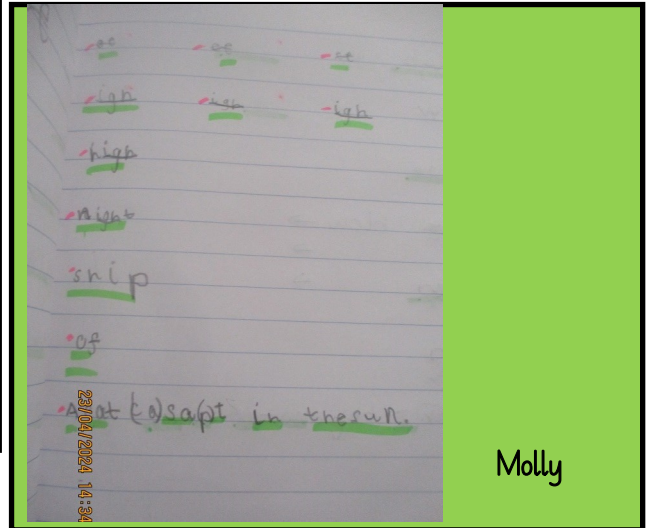 ee ee ee
igh igh igh
high
night
snip
of
A at (a) sa(pt in thesun.
23/04/2024 14:34
Molly